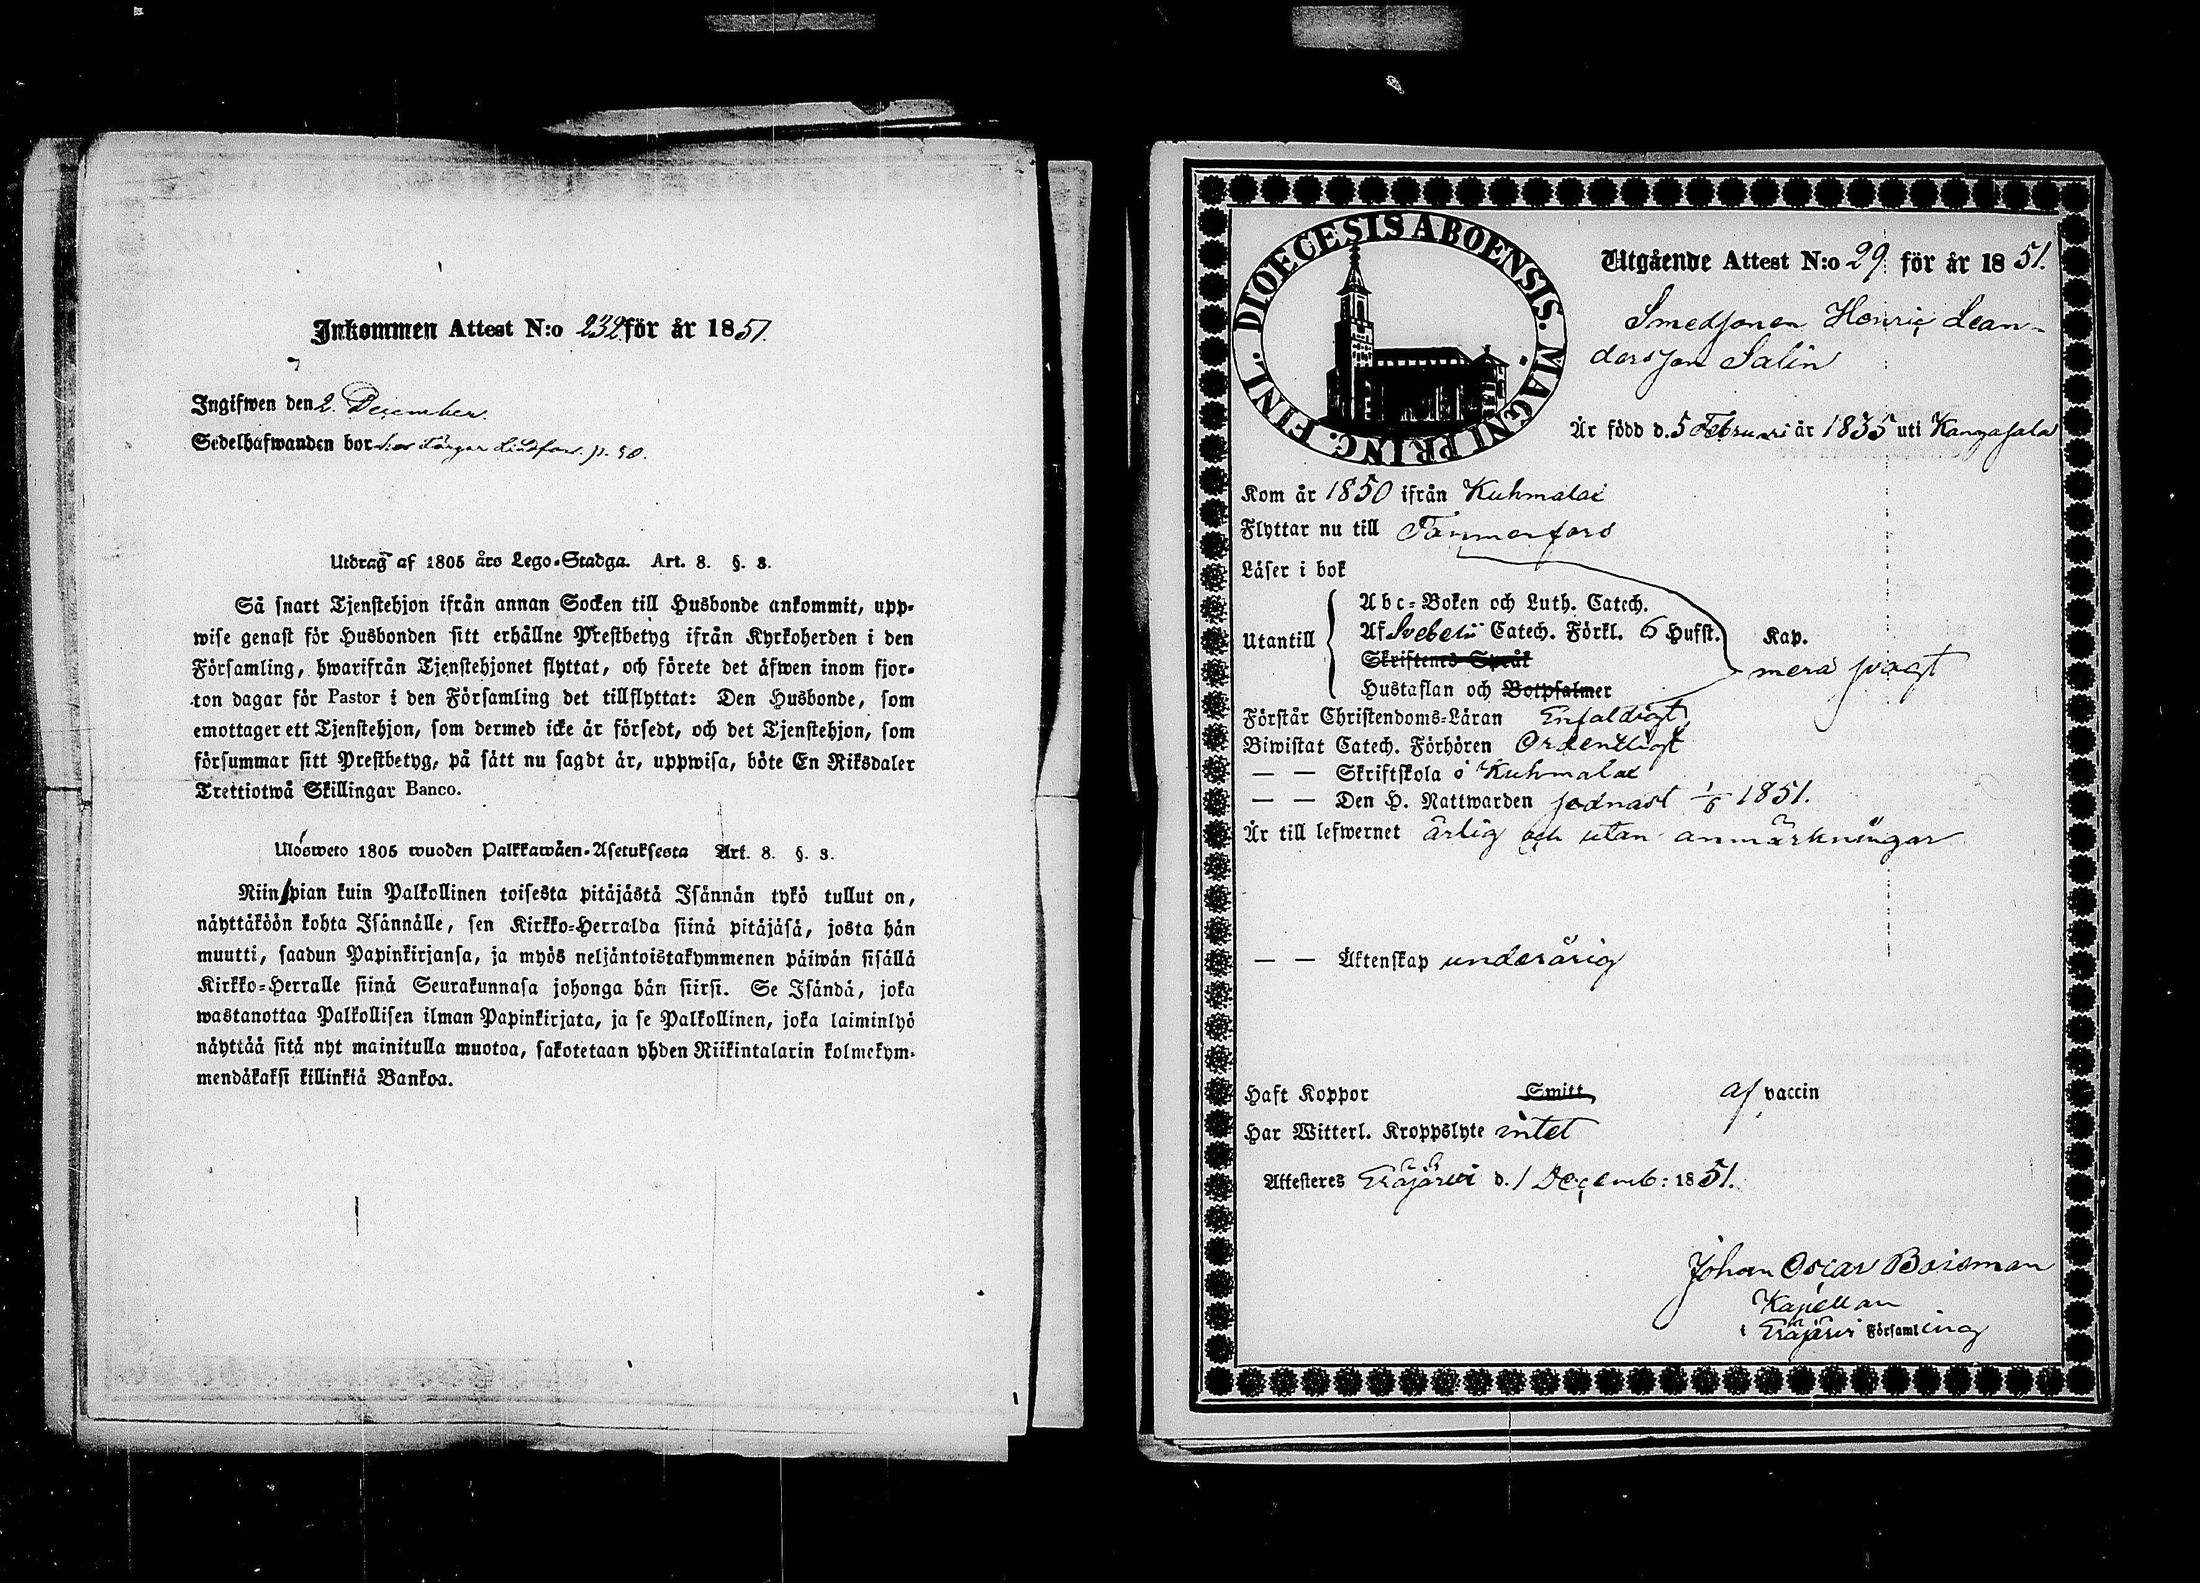 Inkommen Attest N:o 232 för år 1851.
Ingifwen den 2. December.
Sedelhafwanden bor hos p. 50.
Utdrag af 1805 års Lego-Stadga. Art. 8. §. 3.
Så snart Tjenstehjon ifrån annan Socken till Husbonde ankommit, upp-
wise genast för Husbonden sitt erhållne Prestbetyg ifrån Kyrkoherden i den
Församling, hwarifrån Tjenstehjonet flyttat, och förete det äfwen inom fjor-
ton dagar för Pastor i den Församling det tillflyttat: Den Husbonde, som
emottager ett Tjenstehjon, som dermed icke är försedt, och det Tjenstehjon, som
försummar sitt Prestbetyg, på sätt nu sagdt är, uppwisa, böte En Riksdaler
Trettiotwå Skillingar Banco.
Ulösweto 1805 wuoden Palkkawäen-Asetuksesta Art. 8. §. 3.
Niin pian kuin Palkollinen toisesta pitäjästä Isännän tykö tullut on,
näyttäköön kohta Isännälle, sen Kirkko-Herralda siinä pitäjäsä, josta hän
muutti, saadun Papinkirjansa, ja myös neljäntoistakymmenen päiwän sisällä
Kirkko-Herralle siinä Seurakunnasa johonga hän siirsi. Se Isändä, joka
wastanottaa Palkollisen ilman Papinkirjata, ja se Palkollinen, joka laiminlyö
näyttää sitä nyt mainitulla muotoa, sakotetaan yhden Riikintalarin kolmekym-
mendäkaksi killinkiä Bankoa.
DIOECESIS ABOENSIS. MAGNI PRINC. FINL.
Utgående Attest N:o 29 för år 1851.
Smedsonen Henric Lean-
dersson Salin
Är född d. 5 Februari år 1835 uti Kangasala
Kom år 1850 ifrån Kuhmalax
Flyttar nu till Tammerfors
Läser i bok
Utantill
Abc-Boken och Luth. Catech.
Af Svebelii Catech. Förkl. 6 Hufst. Kap.
Skriftenes Språk
mera svagt
Hustaflan och Botpsalmer
Förstår Christendoms-Läran Enfaldigt
Biwistat Catech. Förhören Ordentligt
— — Skriftskola i Kuhmalax
— — Den H. Nattwarden sednast 1/6 1851.
Är till lefwernet ärlig och utan anmärkningar
— — Äktenskap underårig
Haft Koppor Smitt af vaccin
Har Witterl. Kroppslyte intet
Attesteres Eräjärvi d. 1 Decemb: 1851.
Johan Oscar Boisman
Kapellan
i Eräjärvi Församling